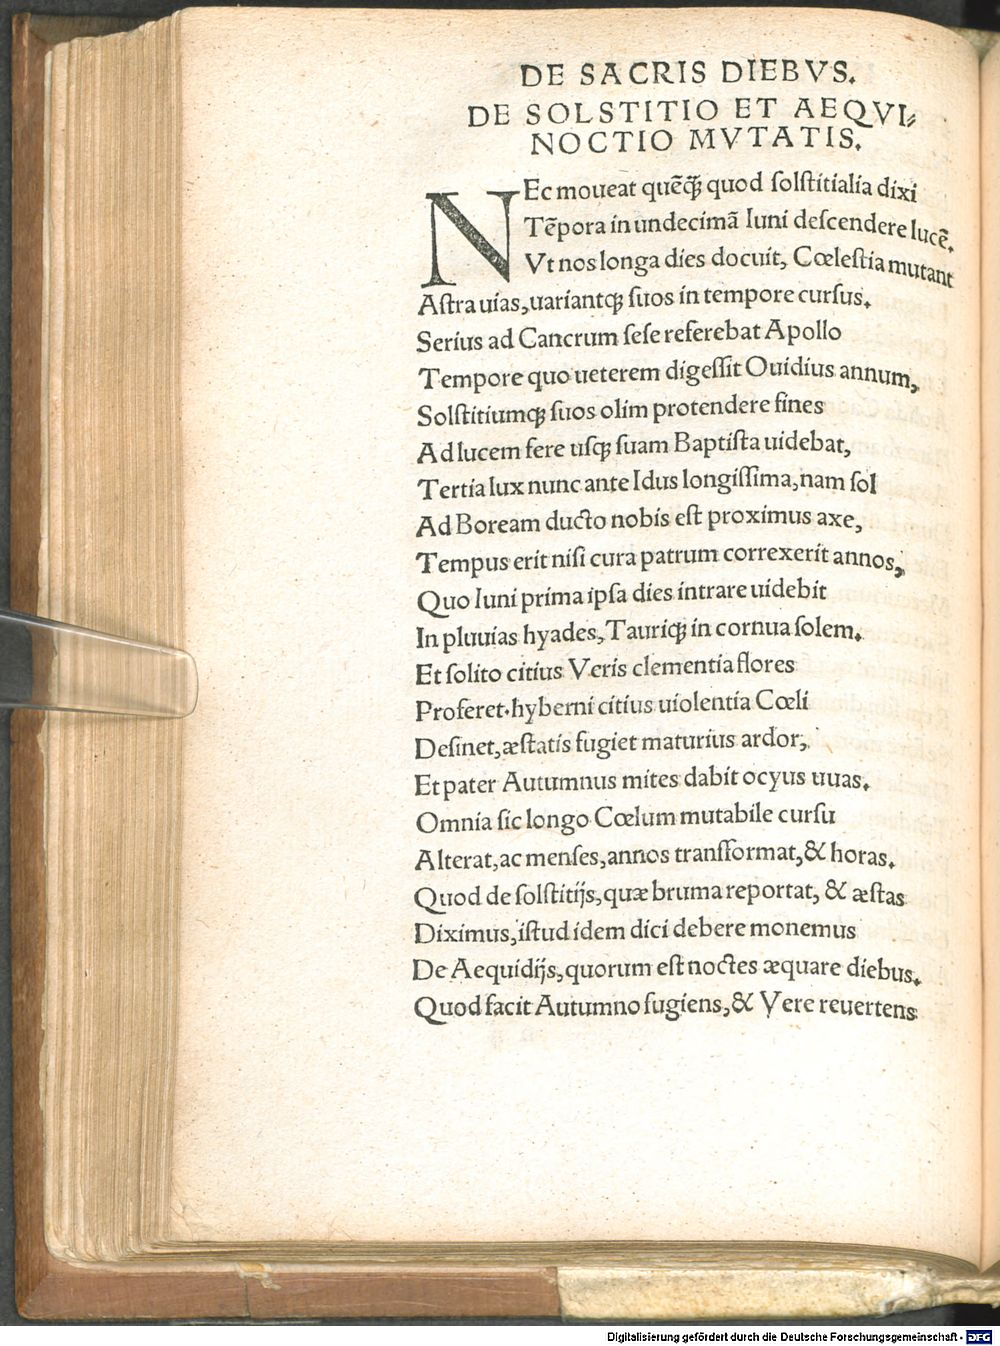 DE SACRIS DIEBVS.
DE SOLSTITIO ET AEQVI⸗
NOCTIO MVTATIS.
NEc moueat quēꝗ̃ quod ſolſtitialia dixi
Tēpora in undecimā Iuni deſcendere lucē.
Vt nos longa dies docuit, Cœleſtia mutant
Aſtra uias, uariantꝗ; ſuos in tempore curſus.
Serius ad Cancrum ſeſe referebat Apollo
Tempore quo ueterem digeſſit Ouidius annum,
Solſtitiumꝗ; ſuos olim protendere fines
Ad lucem fere uſꝗ; ſuam Baptiſta uidebat,
Tertia lux nunc ante Idus longiſſima, nam ſol
Ad Boream ducto nobis eſt proximus axe,
Tempus erit niſi cura patrum correxerit annos,
Quo Iuni prima ipſa dies intrare uidebit
In pluuias hyades, Tauriꝗ; in cornua ſolem.
Et ſolito citius Veris clementia flores
Proferet. hyberni citius uiolentia Cœli
Deſinet, æſtatis fugiet maturius ardor,
Et pater Autumnus mites dabit ocyus uuas.
Omnia ſic longo Cœlum mutabile curſu
Alterat, ac menſes, annos tranſformat, & horas.
Quod de ſolſtitijs, quæ bruma reportat, & æſtas
Diximus, iſtud idem dici debere monemus
De Aequidijs, quorum eſt noctes æquare diebus.
Quod facit Autumno fugiens, & Vere reuertens
Digitalisierung gefördert durch die Deutsche Forschungsgemeinschaft - DFG